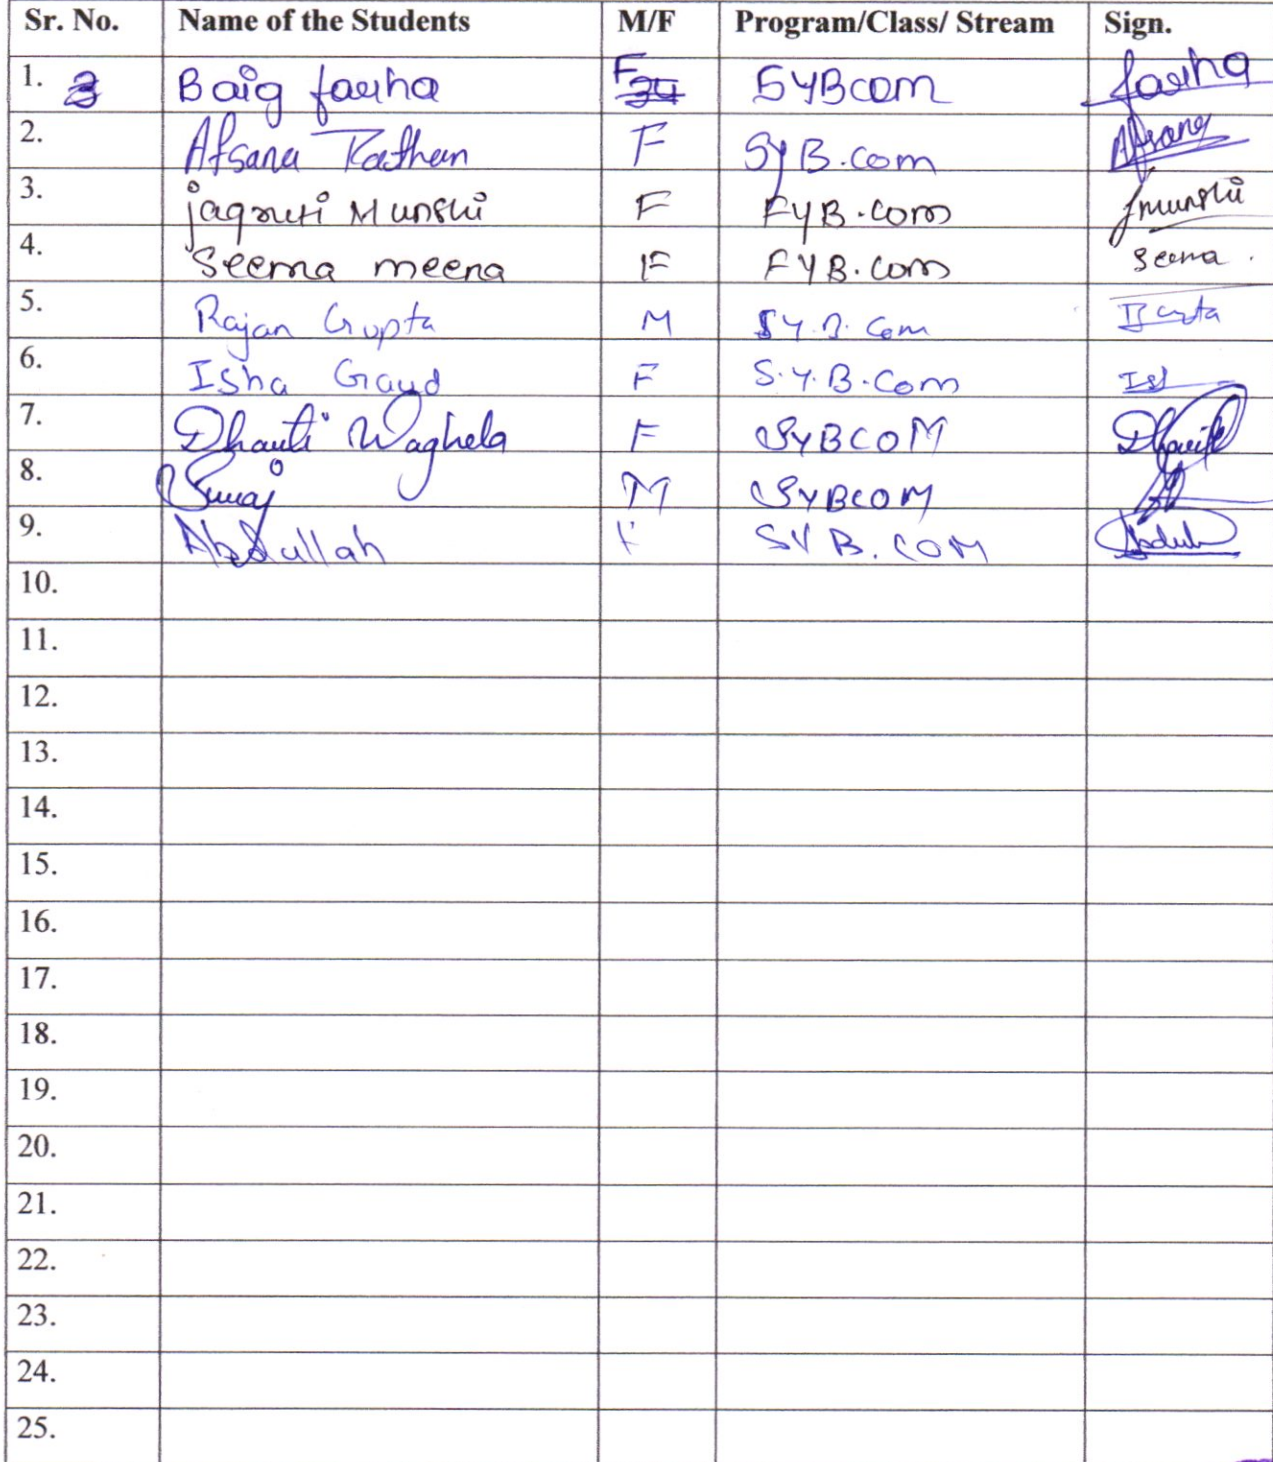 Sr. No. Name of the Students M/F Program/Class/ Stream Sign.
1. Baig farha F SYBCom farha
2. Afsana Pathan F SyB.com Afsana
3. jagruti Munshi F FYB.com jmunshi
4. Seema meena F FYB.com Seema
5. Rajan Gupta M S.Y.B.Com
6. Isha Gaud F S.Y.B.Com
7. Waghela F SYBCOM
8. Suraj M SYBCOM
9. Abdullah SYB.COM
10.
11.
12.
13.
14.
15.
16.
17.
18.
19.
20.
21.
22.
23.
24.
25.